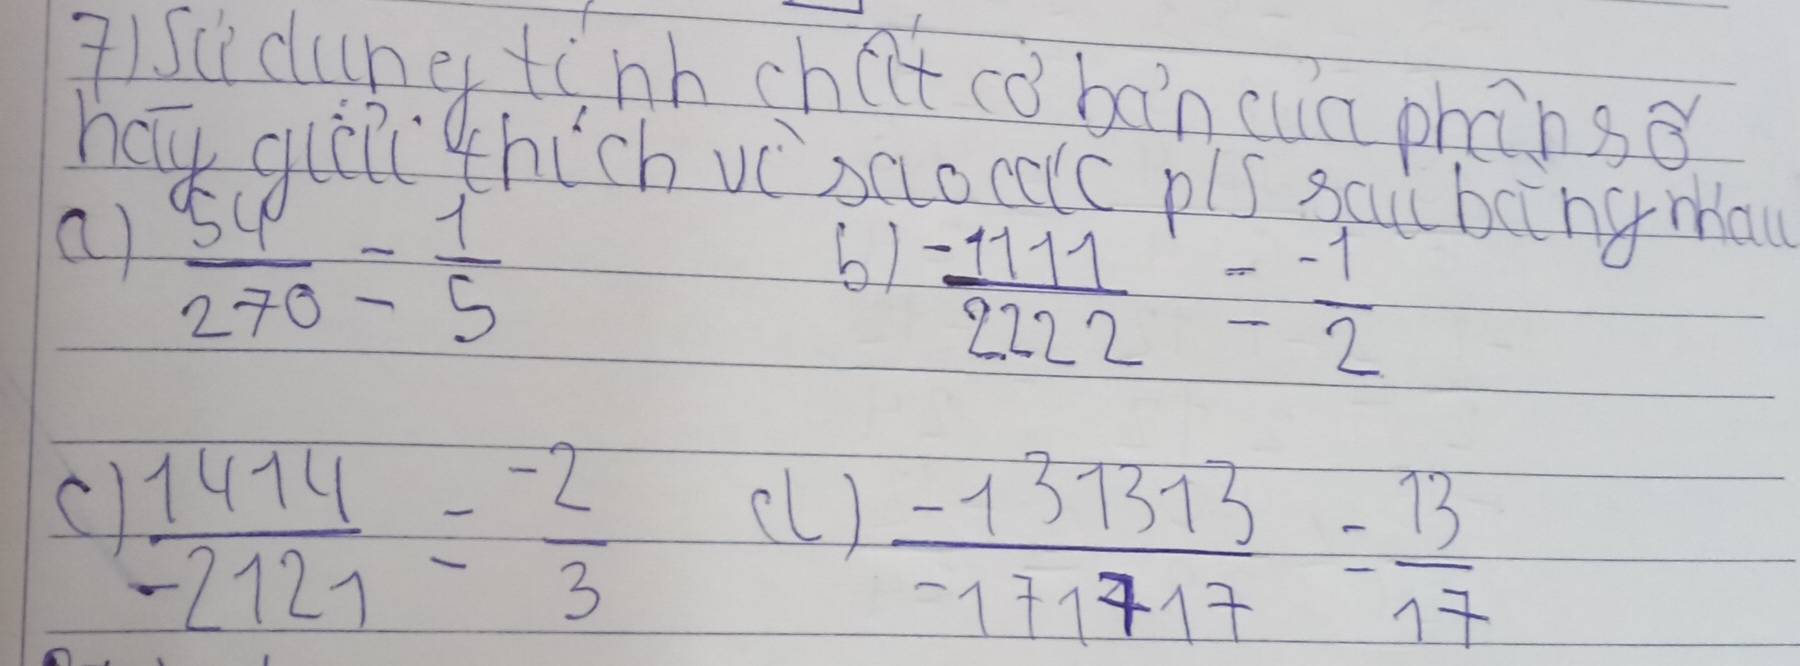 7) Sử dụng tính chất cơ bản của phân số
hãy giải thích vì sao các p/s sau bằng nhau
a) 54/270 = 1/5 b) -1111/2222 = -1/2
c) 1414/-2121 = -2/3 d) -131313/-171717 = 13/17